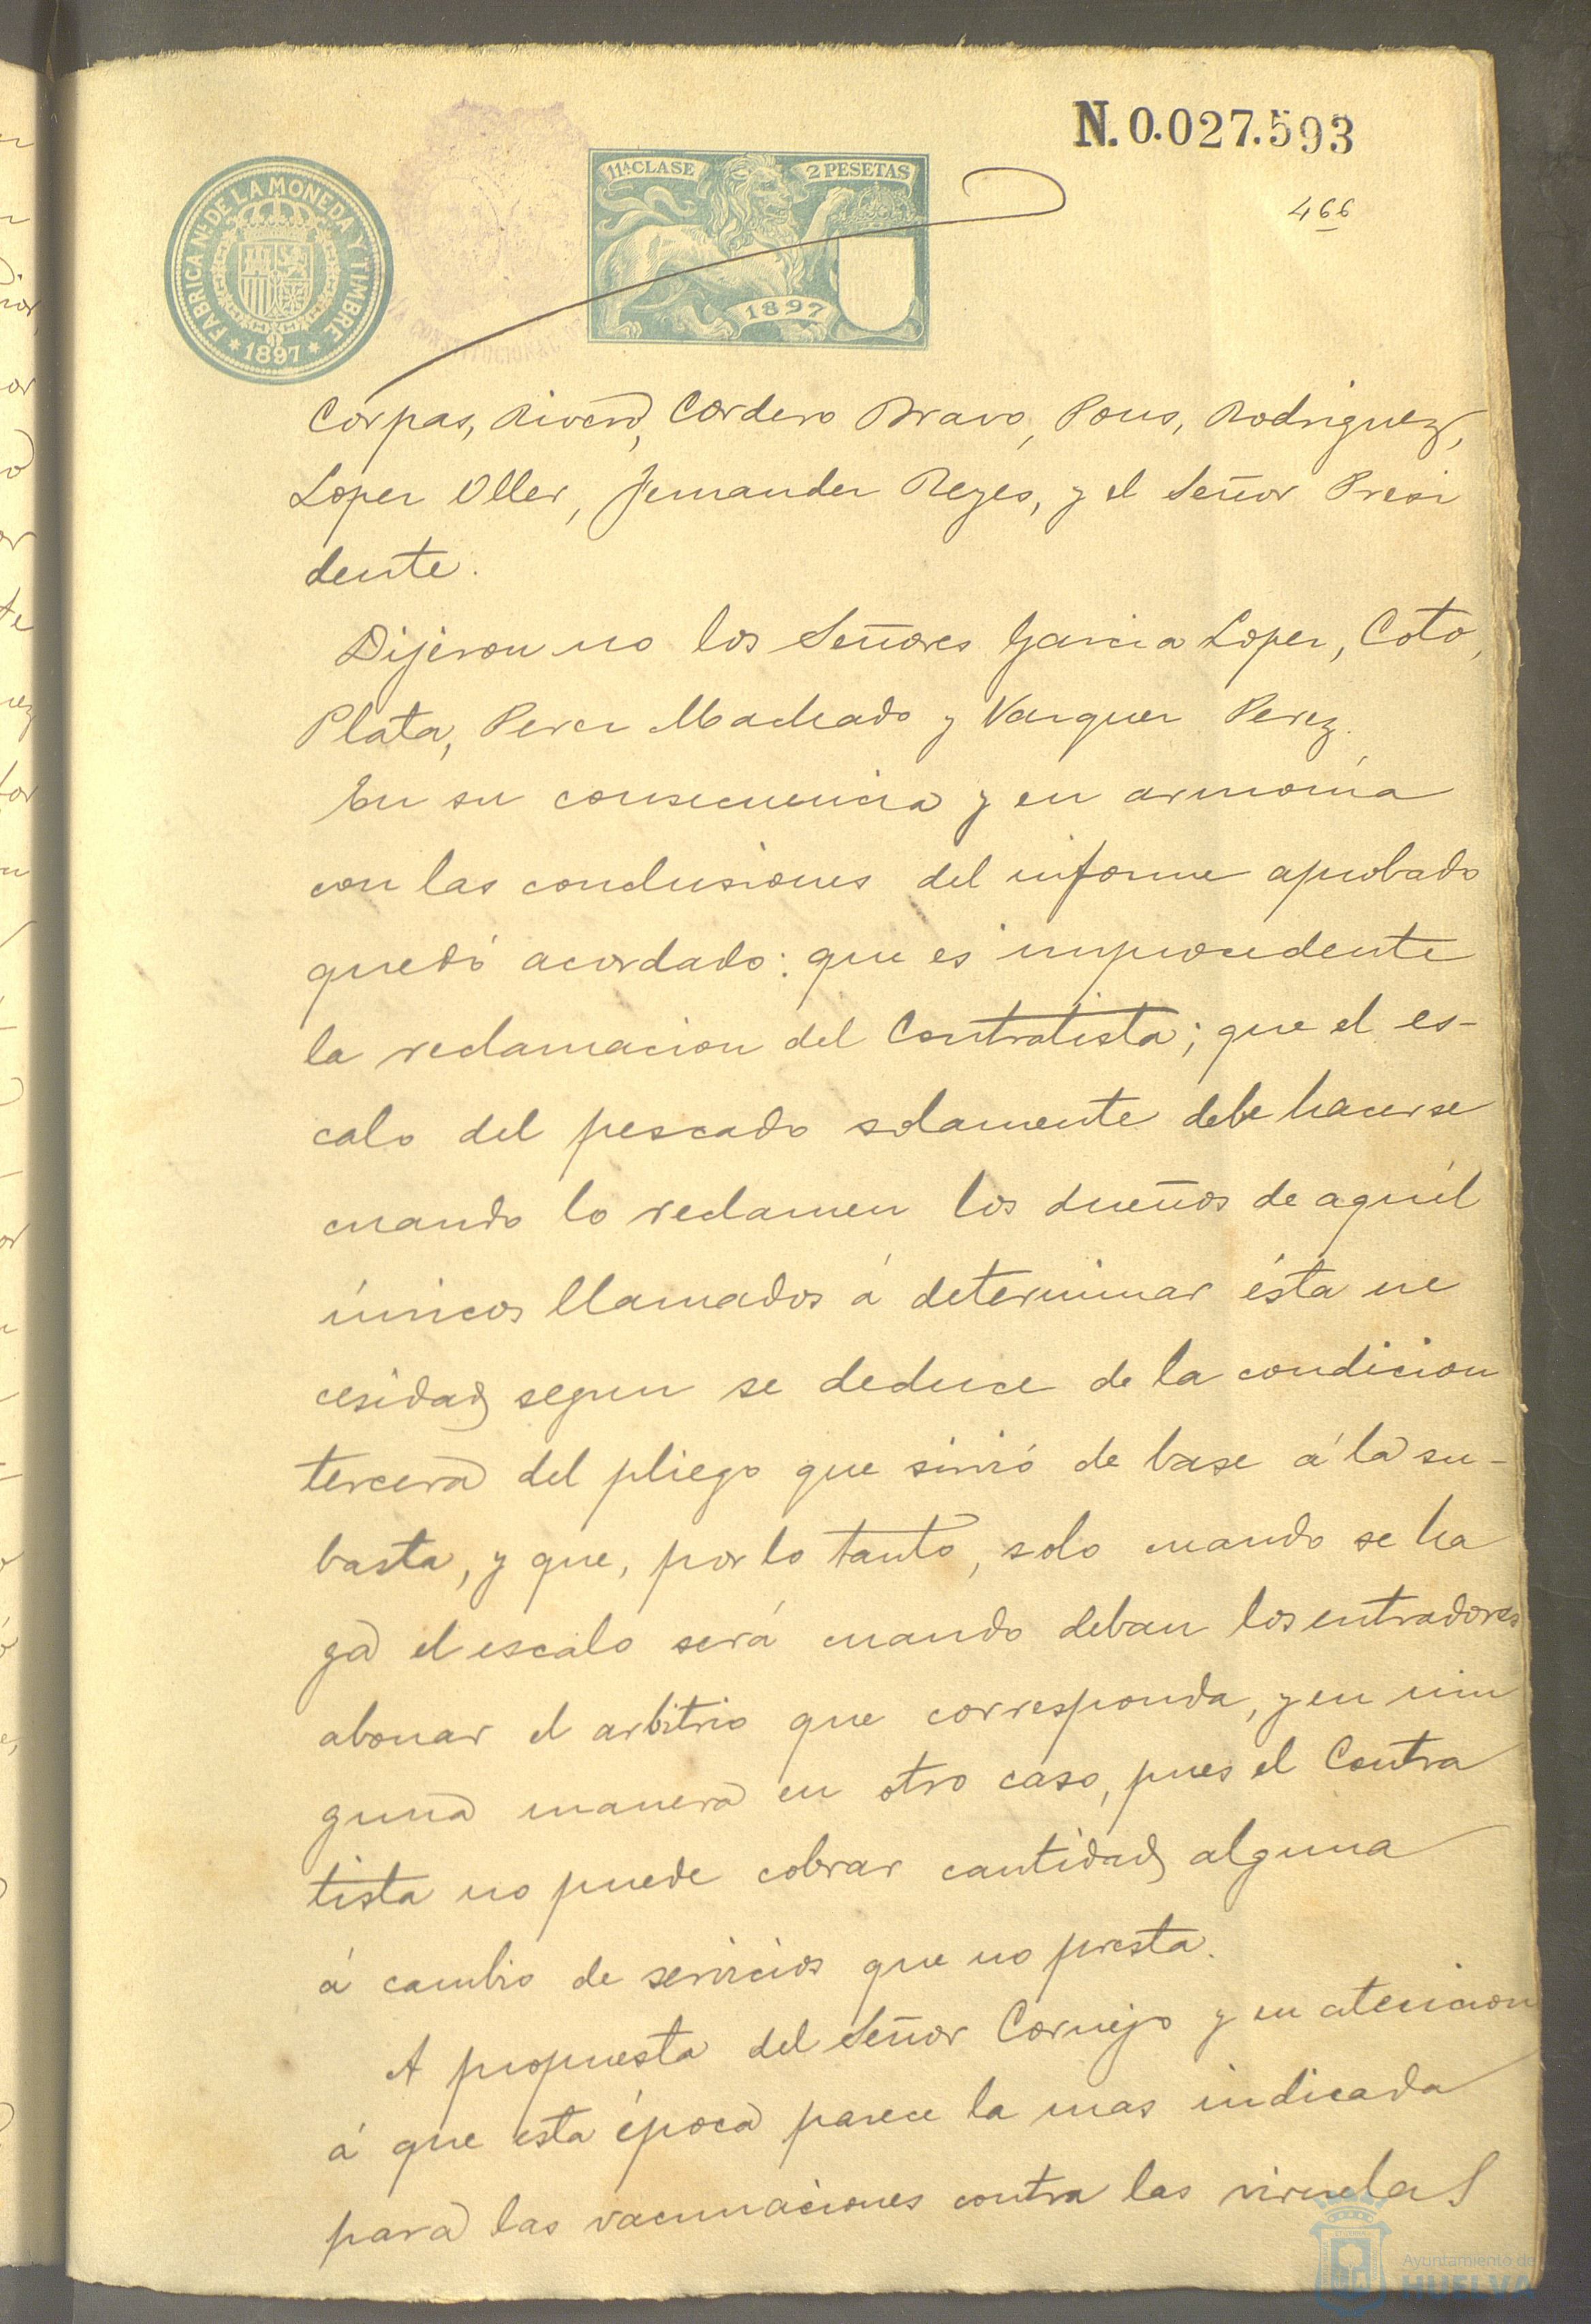 N. 0.027.593
466
FABRICA Nal. DE LA MONEDA Y TIMBRE
* 1897 *
11ª CLASE
2 PESETAS
1897
CONSTITUCIONAL
Corpas, Rivero, Cordero Bravo, Pous, Rodriguez,
Lopez Oller, Fernandez Reyes, y el Señor Presi
dente.
Dijeron no los Señores Garcia Lopez, Coto,
Plata, Perez Machado y Vazquez Perez.
En su consecuencia y en armonía
con las conclusiones del informe aprobado
quedó acordado: que es improcedente
la reclamacion del Contratista; que el es-
calo del pescado solamente debe hacerse
cuando lo reclamen los dueños de aquél
únicos llamados á determinar ésta ne
cesidad segun se deduce de la condicion
tercera del pliego que sirvió de base á la su-
basta, y que, por lo tanto, solo cuando se ha
ga el escalo será cuando deban los entradores
abonar el arbitrio que corresponda, y en nin
guna manera en otro caso, pues el Contra
tista no puede cobrar cantidad alguna
á cambio de servicios que no presta.
A propuesta del Señor Cornejo y en atencion
á que esta época parece la mas indicada
para las vacunaciones contra las viruelas
Ayuntamiento de
HUELVA